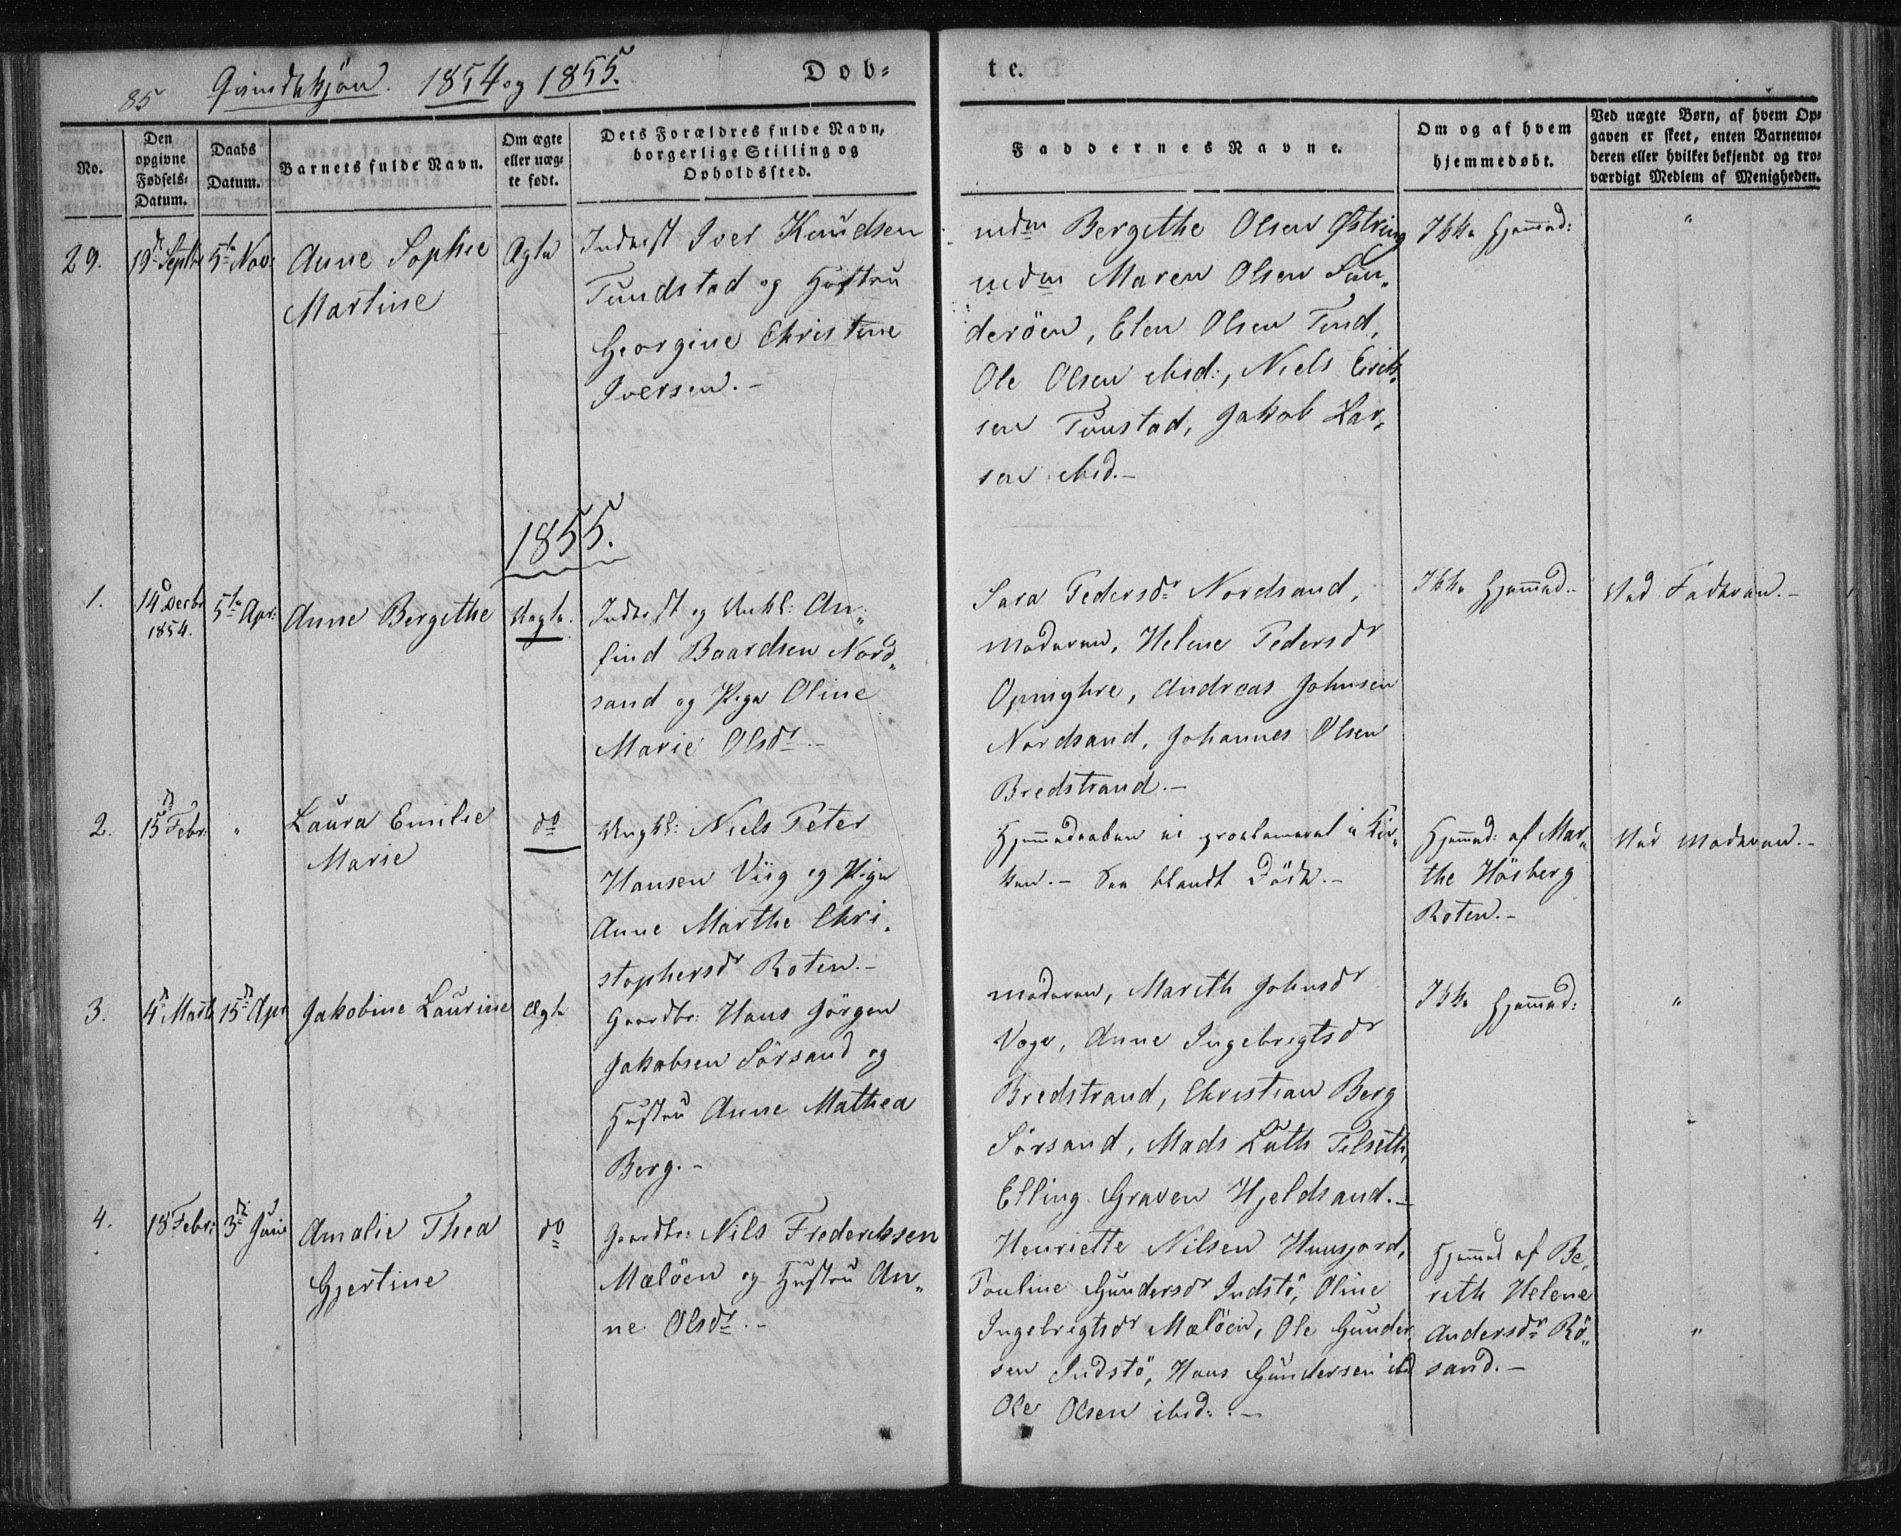 85 Qvindekjön. 1854 og 1855.
Dob-
te.
No.
Den opgivne Fødsels-Datum.
Daabs Datum.
Barnets fulde Navn.
Om ægte eller uæg-te født.
Dets Forældres fulde Navn, borgerlige Stilling og Opholdssted.
Faddernes Navne.
Om og af hvem hjemmedøbt.
Ved uægte Børn, af hvem Op-
gaven er skeet, enten Barnemo-
deren eller hvilket bekjendt og tro-
værdigt Medlem af Menigheden.
29.
19de Septbr
5te Nov:
Anne Sophie
Martine
Ægte
Indherst Iver Knudsen
Tundstad og Hustru
Georgine Christine
Iversen.-
Mdm Bergithe Olsen Østring
Mdm Maren Olsen Sun„
derøen, Elen Olsen Tind,
Ole Olsen ibid:, Niels Erik„
sen Tunstad, Jakob Lar„
sen ibid.-
Ikke hjemmed:
"
1855.
1.
14de Decbr
1854.
5te Apr:
Anne Bergithe
Uægte.
Inderst og Unkl: An„
find Baardsen Nord„
sand og Pige Oline
Marie Olsdr.-
Sara Pedersdr Nordsand,
Moderen, Helene Pedersdr
Opmyhre, Andreas Johnsen
Nordsand, Johannes Olsen
Bredstrand.-
Ikke hjemmed:
Ved Faderen.-
2.
15de Febr:
"
Laura Emilie
Marie
do
Ungkl: Niels Peter
Hansen Viig og Pige
Anne Marthe Chri„
stophersdr Roten.-
Hjemmedaaben ei proclameret i Kir„
ken.- See blandt Döde.-
Hjemmed: af Mar„
the Hösberg
Roten.-
Ved Moderen.-
3.
4de Marts
15de Apr
Jakobine Laurine
Ægte
Gaardbr: Hans Jörgen
Jakobsen Sörsand og
Hustru Anne Mathea
Berg.-
Moderen, Mareth Johnsdr
Vage, Anne Ingebrigtsdr
Bredstrand, Christian Berg
Sörsand, Mads Luth Filseth,
Elling Graven Hjeldsand.-
Ikke hjemmed:
"
4.
18 Febr:
3de Juni
Amalie Thea
Gjertine
do
Gaardbr: Nils Frederiksen
Mælöen og Hustru An„
ne Olsdr.-
Henriette Nilsen Huusjord,
Pauline Gundersdr Indstö, Oline
Ingebrigtsdr Mælöen, Ole Gunder„
sen Indstö, Hans Gundersen ibd
Ole Olsen ibid:.-
Hjemmed af Be„
reth Helene
Andersdr Rö„
sand.-
"